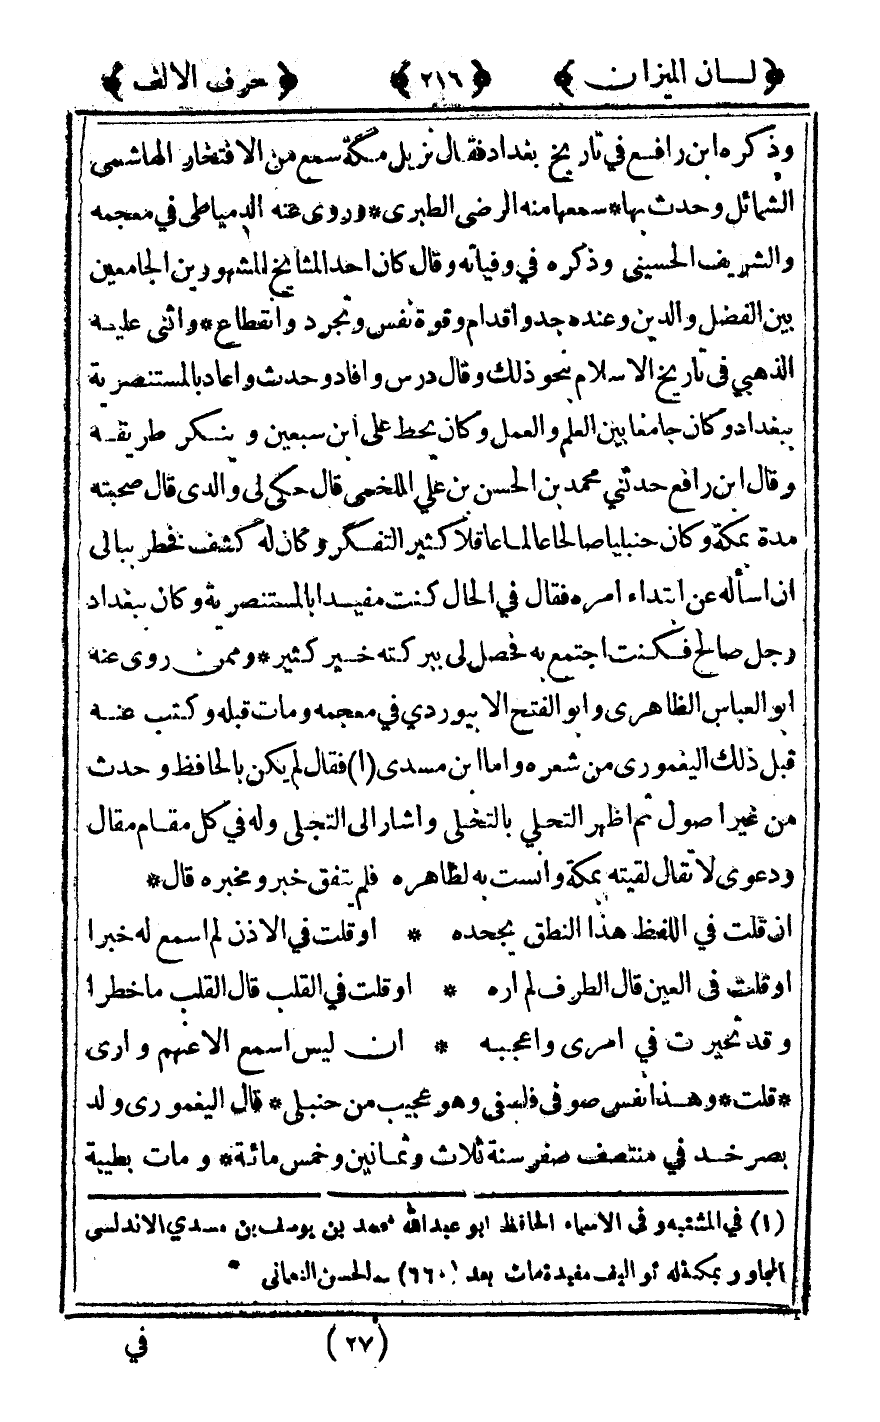 ﴿ لسان الميزان ﴾ ﴿ ٢١٦ ﴾ ﴿ حرف الالف ﴾
وذكره ابن رافع في تاريخ بغداد فقال نزيل مكة سمع من الافتخار الهاشمى
الشمائل وحدث بها * سمعها منه الرضى الطبرى * وروى عنه الدمياطى في معجمه
والشريف الحسيني وذكره في وفياته وقال كان احد المشايخ المشهورين الجامعين
بين الفضل والدين وعنده جد واقدام وقوة نفس وتجرد وانقطاع * واثنى عليه
الذهبي فى تاريخ الاسلام بنحو ذلك وقال درس وافاد وحدث واعاد بالمستنصرية
ببغداد وكان جامعا بين العلم والعمل وكان يحط على ابن سبعين وينكر طريقه
وقال ابن رافع حدثني محمد بن الحسن بن علي اللخمى قال حكى لى والدى قال صحبته
مدة بمكة وكان حنبليا صالحا عالما عاقلا كثير التفكر وكان له كشف فخطر ببالى
ان اسأله عن ابتداء امره فقال في الحال كنت مفيدا بالمستنصرية وكان ببغداد
رجل صالح فكنت اجتمع به فحصل لى ببركته خير كثير * وممن روى عنه
ابو العباس الظاهرى وابو الفتح الابيوردي في معجمه ومات قبله وكتب عنه
قبل ذلك اليغمورى من شعره واما ابن مسدى (١) فقال لم يكن بالحافظ وحدث
من غير اصول ثم اظهر التحلي بالتخلى واشار الى التجلى وله في كل مقام مقال
ودعوى لا تقال لقيته بمكة وانست به لظاهره فلم يتفق خبر ومخبره قال *
ان قلت في اللفظ هذا النطق يجحده * او قلت في الاذن لم اسمع له خبرا
او قلت فى العين قال الطرف لم اره * او قلت في القلب قال القلب ما خطرا
وقد تحيرت في امرى واعجبه * ان ليس اسمع الا عنهم وارى
* قلت * وهذا نفس صوفى فلسفى وهو عجيب من حنبلى * قال اليغمورى ولد
بصرخد في منتصف صفر سنة ثلاث وثمانين وخمس مائة * ومات بطيبة
(١) في المشتبه وفى الاسماء الحافظ ابو عبدالله محمد بن يوسف بن مسدي الاندلسى
المجاور بمكة له تواليف مفيدة مات بعد (٦٦٠) سه الحسن النعمانى *
(٢٧) في